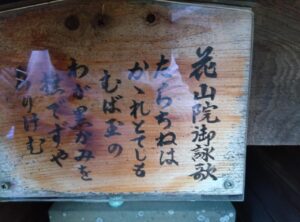 花山院御詠歌
たらちねは
かゝれとてしも
むば玉の
わが黒かみを
撫ですや
ありけむ